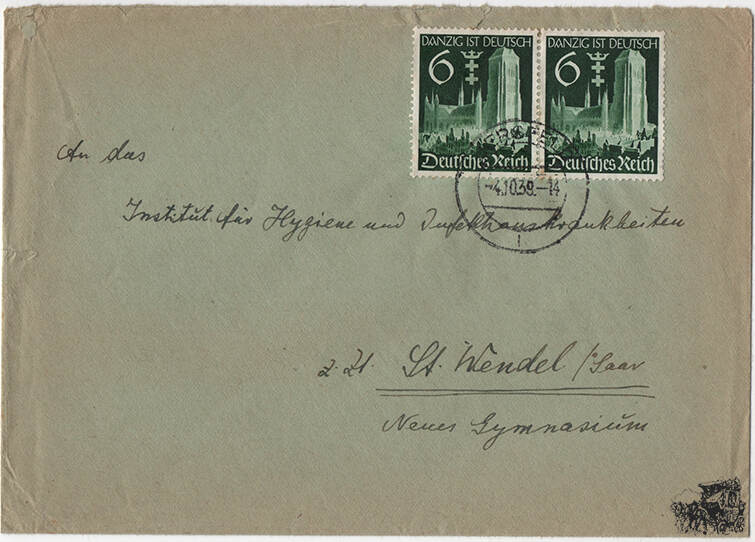 DANZIG IST DEUTSCH
6
Deutsches Reich
DANZIG IST DEUTSCH
6
Deutsches Reich
-4.10.39.-14
An das
Institut für Hygiene und Infektionskrankheiten
z. Zt. St. Wendel /Saar
Neues Gymnasium